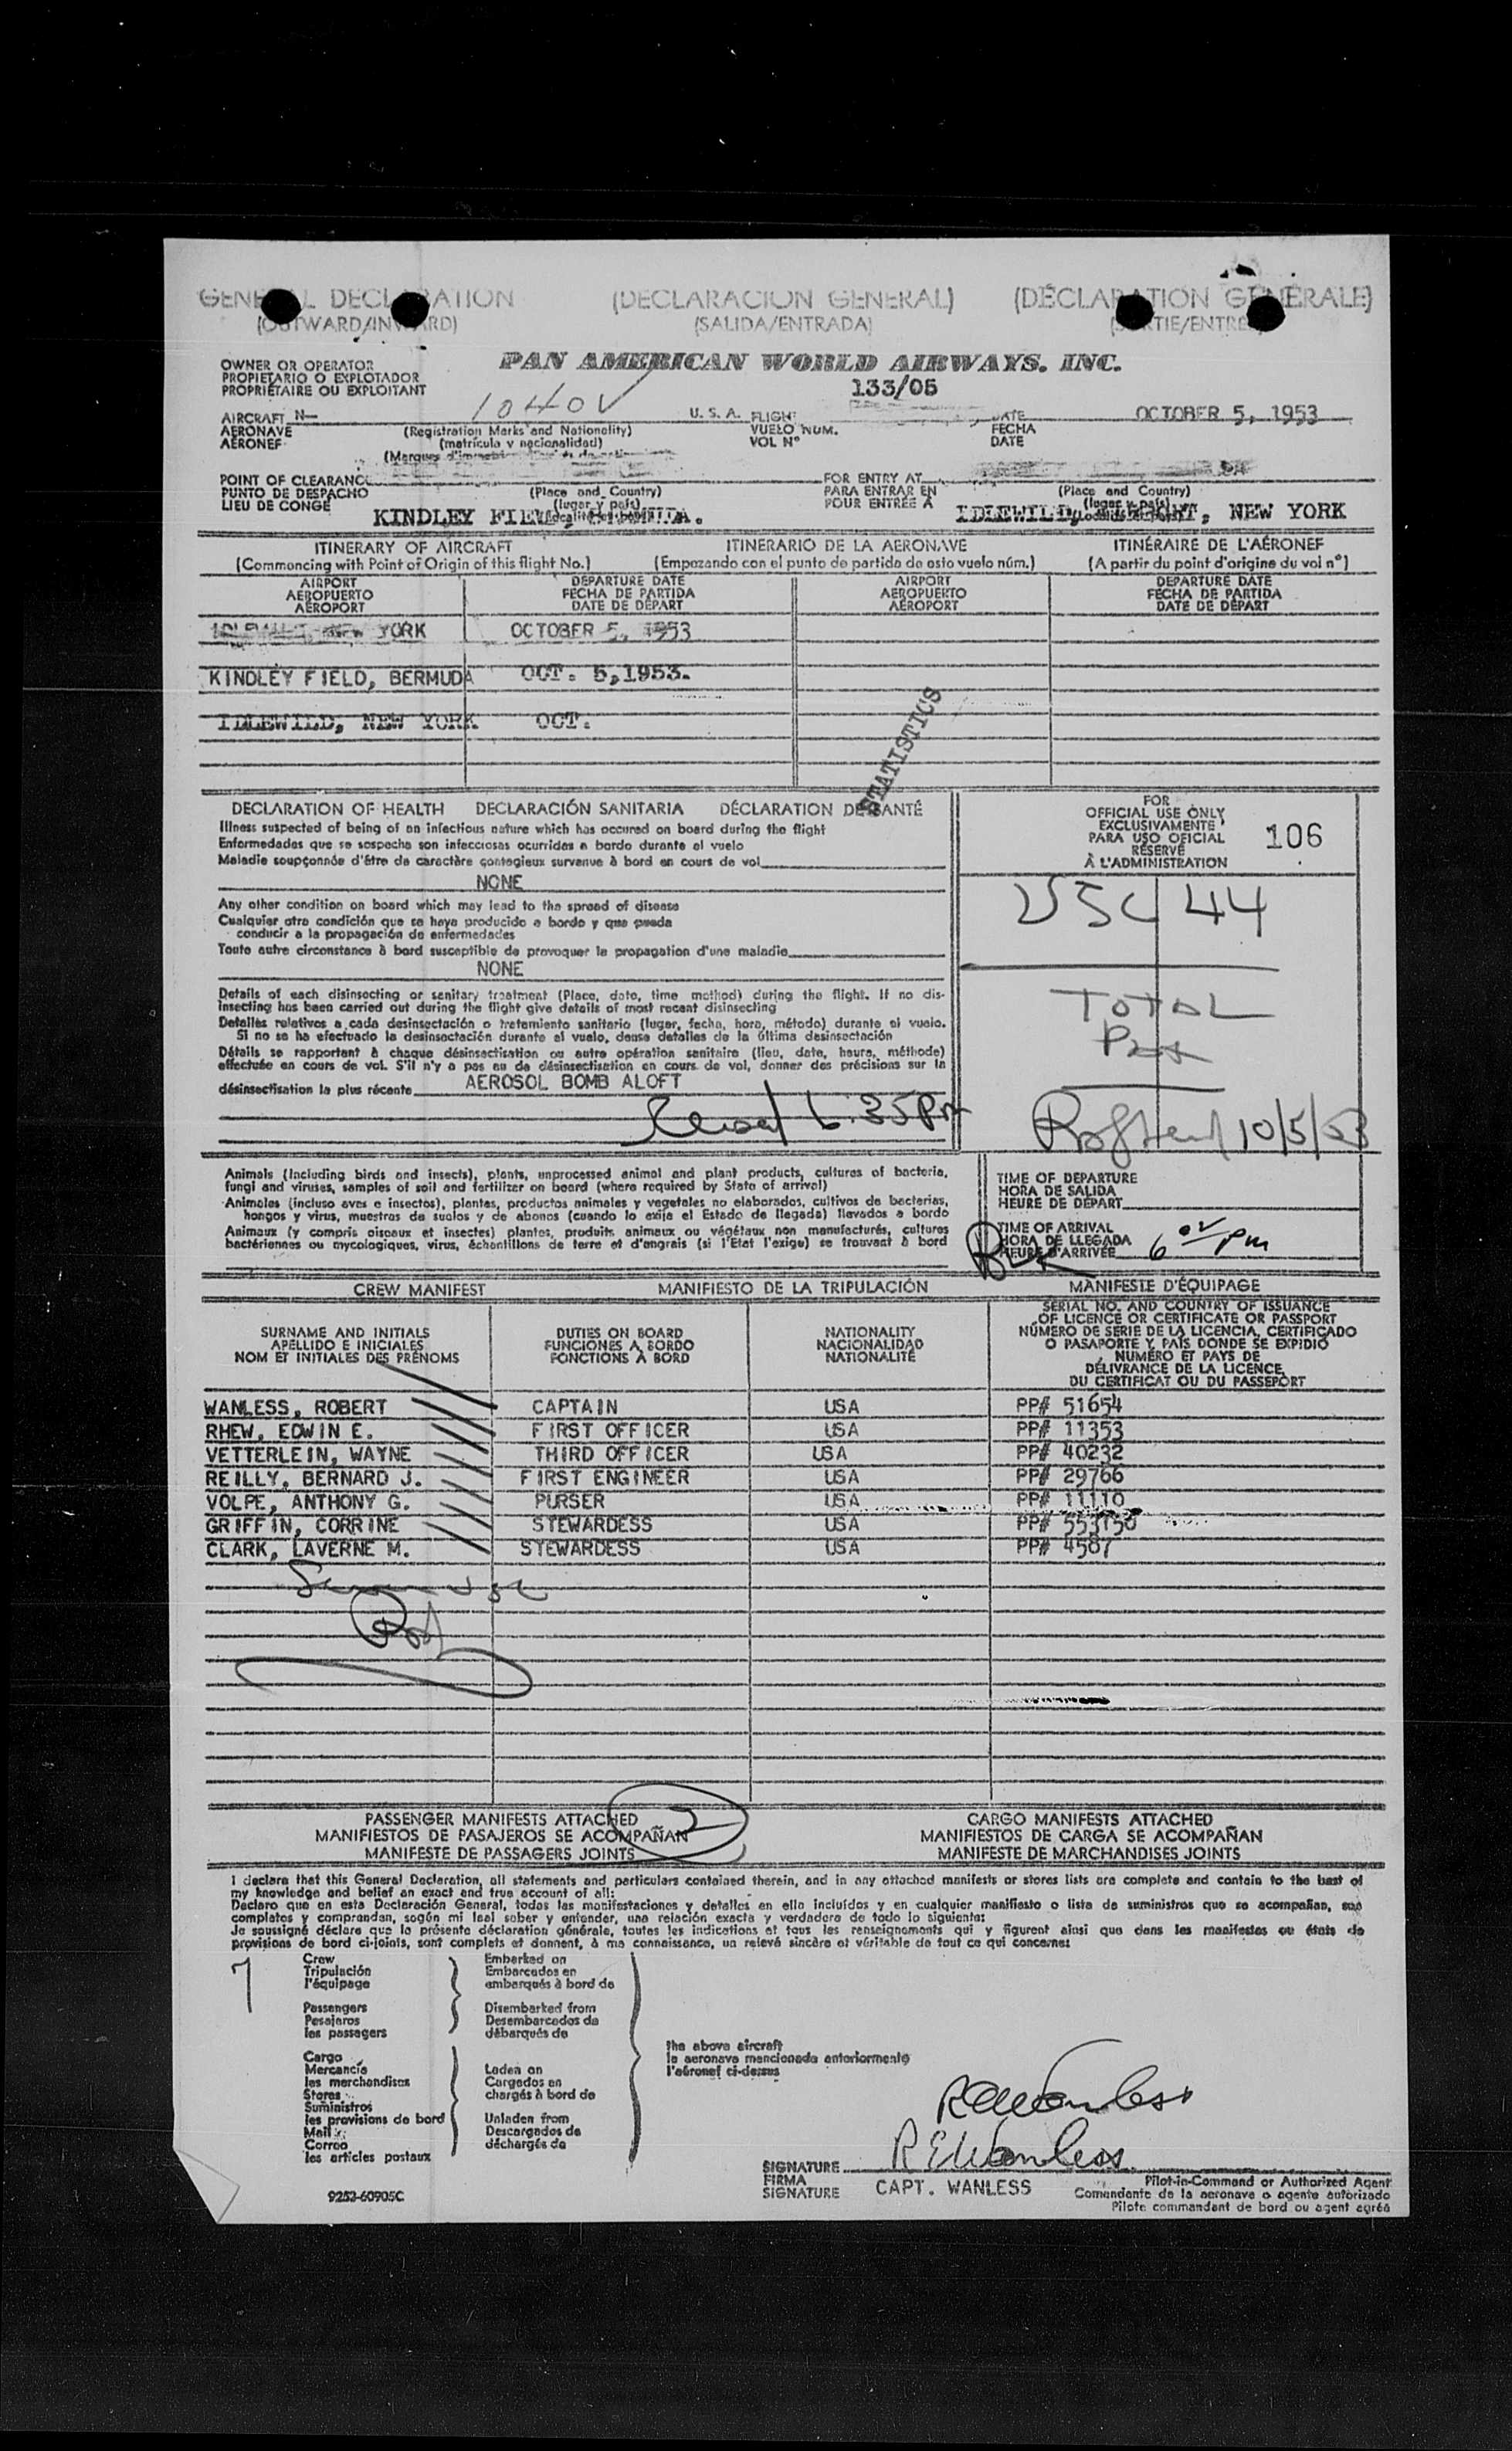 GENERAL DECLARATION (DECLARACION GENERAL) (DÉCLARATION GÉNÉRALE)
(OUTWARD/INWARD) (SALIDA/ENTRADA) (SORTIE/ENTRÉE)
OWNER OR OPERATOR
PROPIETARIO O EXPLOTADOR
PROPRIÉTAIRE OU EXPLOITANT
PAN AMERICAN WORLD AIRWAYS. INC.
133/05
AIRCRAFT N— 1040V U. S. A. FLIGHT DATE OCTOBER 5, 1953
AERONAVE (Registration Marks and Nationality) VUELO NUM. FECHA
AÉRONEF (matrícula y nacionalidad) VOL Nº DATE
POINT OF CLEARANCE FOR ENTRY AT
PUNTO DE DESPACHO (Place and Country) PARA ENTRAR EN (Place and Country)
LIEU DE CONGÉ (lugar y país) POUR ENTRÉE A (lugar y país)
KINDLEY IDLEWILD, NEW YORK
ITINERARY OF AIRCRAFT ITINERARIO DE LA AERONAVE ITINÉRAIRE DE L'AÉRONEF
(Commencing with Point of Origin of this flight No.) (Empezando con el punto de partida de esto vuelo núm.) (A partir du point d'origine du vol nº)
AIRPORT DEPARTURE DATE AIRPORT DEPARTURE DATE
AEROPUERTO FECHA DE PARTIDA AEROPUERTO FECHA DE PARTIDA
AÉROPORT DATE DE DÉPART AÉROPORT DATE DE DÉPART
YORK OCTOBER 5, 1953
KINDLEY FIELD, BERMUDA OCT. 5,1953.
IDLEWILD, NEW YORK OCT.
STATISTICS
DECLARATION OF HEALTH DECLARACIÓN SANITARIA DÉCLARATION DE SANTÉ
Illness suspected of being of an infectious nature which has occured on board during the flight
Enfermedades que se sospecha son infecciosas ocurridas a bordo durante el vuelo
Maladie soupçonnée d'être de caractère contagieux survenue à bord en cours de vol
NONE
Any other condition on board which may lead to the spread of disease
Cualquier otra condición que se haya producido a bordo y que pueda
conducir a la propagación de enfermedades
Toute autre circonstance à bord susceptible de provoquer la propagation d'une maladie
NONE
Details of each disinsecting or sanitary treatment (Place, date, time method) during the flight. If no dis-
insecting has been carried out during the flight give details of most recent disinsecting
Detalles relativos a cada desinsectación o tratamiento sanitario (lugar, fecha, hora, método) durante el vuelo.
Si no se ha efectuado la desinsectación durante el vuelo, dense detalles de la última desinsectación
Détails se rapportant à chaque désinsectisation ou autre opération sanitaire (lieu, date, heure, méthode)
effectuée en cours de vol. S'il n'y a pas eu de désinsectisation en cours de vol, donner des précisions sur la
désinsectisation la plus récente AEROSOL BOMB ALOFT
6:35 pm
FOR
OFFICIAL USE ONLY
EXCLUSIVAMENTE
PARA USO OFICIAL
RÉSERVÉ
À L'ADMINISTRATION
106
USC 44
TOTAL
Pax
10/5/53
Animals (including birds and insects), plants, unprocessed animal and plant products, cultures of bacteria,
fungi and viruses, samples of soil and fertilizer on board (where required by State of arrival)
Animales (incluso aves e insectos), plantas, productos animales y vegetales no elaborados, cultivos de bacterias,
hongos y virus, muestras de suelos y de abonos (cuando lo exija el Estado de llegada) llevados a bordo
Animaux (y compris oiseaux et insectes) plantes, produits animaux ou végétaux non manufacturés, cultures
bactériennes ou mycologiques, virus, échantillons de terre et d'engrais (si l'Etat l'exige) se trouvant à bord
TIME OF DEPARTURE
HORA DE SALIDA
HEURE DE DÉPART
TIME OF ARRIVAL
HORA DE LLEGADA
HEURE D'ARRIVÉE 6 pm
CREW MANIFEST MANIFIESTO DE LA TRIPULACIÓN MANIFESTE D'ÉQUIPAGE
SURNAME AND INITIALS
APELLIDO E INICIALES
NOM ET INITIALES DES PRÉNOMS
DUTIES ON BOARD
FUNCIONES A BORDO
FONCTIONS À BORD
NATIONALITY
NACIONALIDAD
NATIONALITÉ
SERIAL NO. AND COUNTRY OF ISSUANCE
OF LICENCE OR CERTIFICATE OR PASSPORT
NÚMERO DE SERIE DE LA LICENCIA, CERTIFICADO
O PASAPORTE Y PAÍS DONDE SE EXPIDIÓ
NUMÉRO ET PAYS DE
DÉLIVRANCE DE LA LICENCE,
DU CERTIFICAT OU DU PASSEPORT
WANLESS, ROBERT CAPTAIN USA PP# 51654
RHEW, EDWIN E. FIRST OFFICER USA PP# 11353
VETTERLEIN, WAYNE THIRD OFFICER USA PP# 40232
REILLY, BERNARD J. FIRST ENGINEER USA PP# 29766
VOLPE, ANTHONY G. PURSER USA PP# 11110
GRIFFIN, CORRINE STEWARDESS USA PP# 553150
CLARK, LAVERNE M. STEWARDESS USA PP# 4587
Seven usc
PASSENGER MANIFESTS ATTACHED 2 CARGO MANIFESTS ATTACHED
MANIFIESTOS DE PASAJEROS SE ACOMPAÑAN MANIFIESTOS DE CARGA SE ACOMPAÑAN
MANIFESTE DE PASSAGERS JOINTS MANIFESTE DE MARCHANDISES JOINTS
I declare that this General Declaration, all statements and particulars contained therein, and in any attached manifests or stores lists are complete and contain to the best of
my knowledge and belief an exact and true account of all:
Declaro que en esta Declaración General, todas las manifestaciones y detalles en ella incluídos y en cualquier manifiesto o lista de suministros que se acompañan, son
completos y comprendan, según mi leal saber y entender, una relación exacta y verdadera de todo lo siguiente:
Je soussigné déclare que la présente déclaration générale, toutes les indications et tous les renseignements qui y figurent ainsi que dans les manifestes ou états de
provisions de bord ci-joints, sont complets et donnent, à ma connaissance, un relevé sincère et véritable de tout ce qui concerne:
7
Crew
Tripulación
l'équipage
Passengers
Pasajeros
les passagers
Embarked on
Embarcados en
embarqués à bord de
Disembarked from
Desembarcados de
débarqués de
Cargo
Mercancía
les merchandises
Stores
Suministros
les provisions de bord
Mail
Correo
les articles postaux
Laden on
Cargados en
chargés à bord de
Unladen from
Descargados de
déchargés de
the above aircraft
la aeronave mencionada anteriormente
l'aéronef ci-dessus
REWanless
SIGNATURE REWanless
FIRMA
SIGNATURE CAPT. WANLESS
Pilot-in-Command or Authorized Agent
Comandante de la aeronave o agente autorizado
Pilote commandant de bord ou agent agréé
9252-60905C